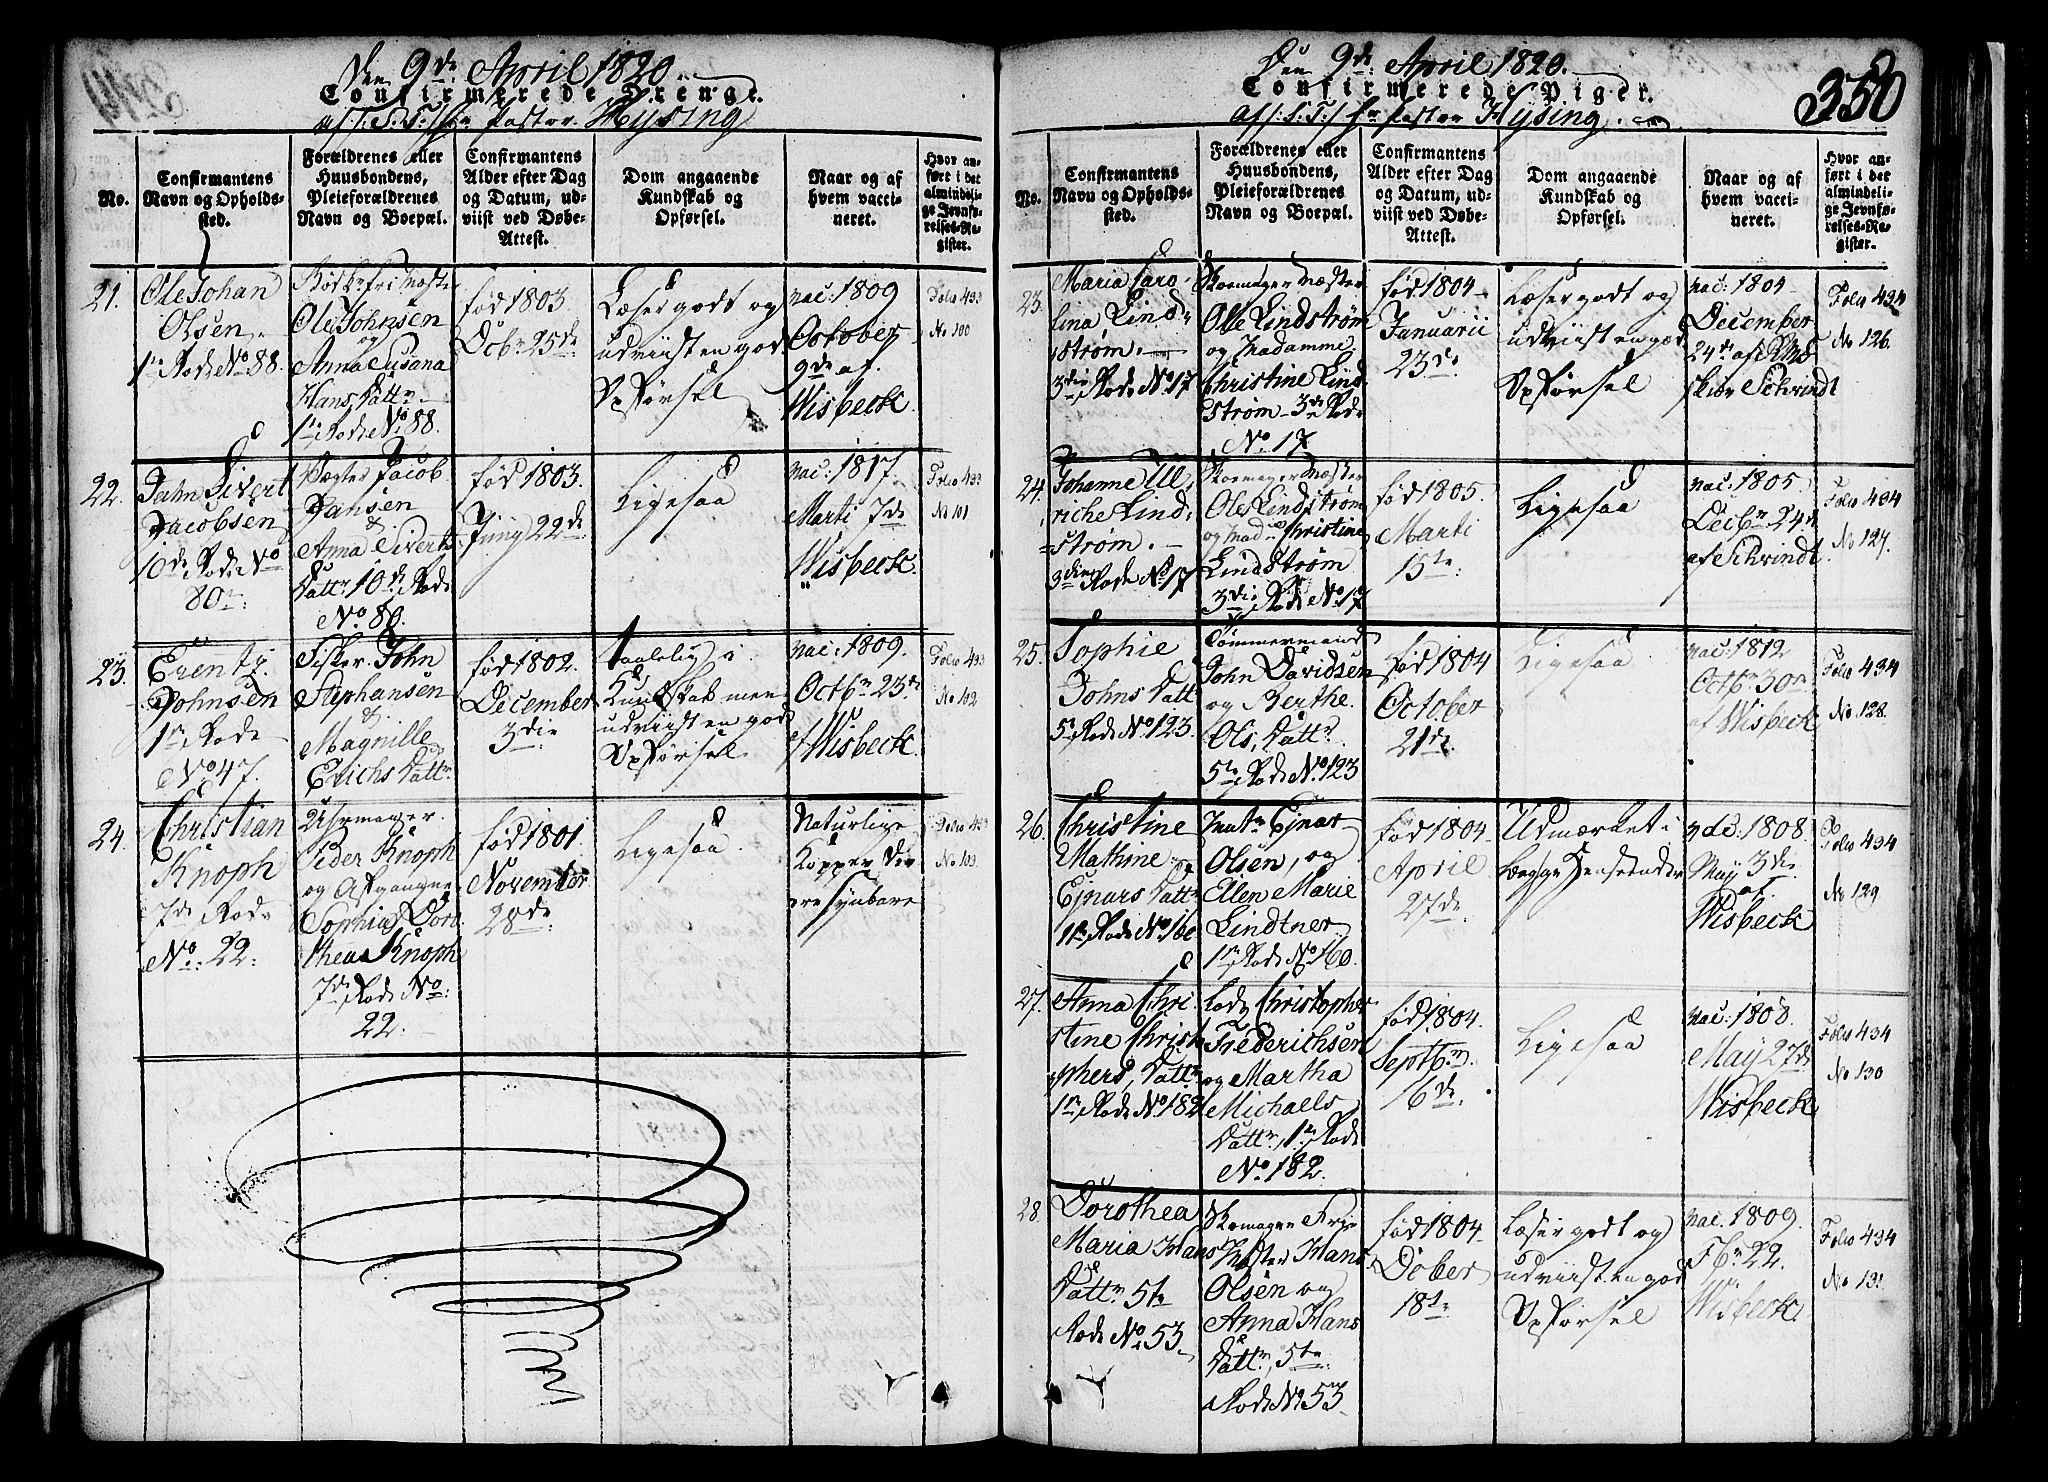 Den 9de April 1820.
Confirmerede Drenge.
af S. T. Hr Pastor Hysing
No.
Confirmantens
Navn og Opholds-
sted.
Forældrenes eller
Huusbondens,
Pleieforældrenes
Navn og Boepæl.
Confirmantens
Alder efter Dag
og Datum, ud-
viist ved Døbe-
Attest.
Dom angaaende
Kundskab og
Opførsel.
Naar og af
hvem vacci-
neret.
Hvor an-
ført i det
almindeli-
ge Jevnfø-
relses-Re-
gister.
21.
Ole Johan
Olsen.
1te Rode No 88.
Ole Johnsen
og
Anna Susana
Hans Dattr
1te Rode No 88.
fød 1803
Octbr 25de
Læser godt og
udviist en god
Opførsel
vac: 1809
October
9de af.
Wisbeck.
Folio 433
No 100
22.
Jahn Sivert
Jacobsen
10de Rode No
80
Jacob
Jansen
&
Anna Siverts
Dattr 10de Rode
No 80.
fød 1803.
Juny 22de
Ligesaa
vac: 1817.
Marti 7de
Wisbeck.
Folio 433
No 101
23.
Erents
Johnsen
1te Rode
No 47.
Fisker John
Stephansen
&
Magnille
Erichs Dattr
fød 1802.
December
3die
taalelig i
Kundskab men
udviist en god
Opførsel
vac: 1809.
Octbr 23de
af Wisbeck
Folio 433
No 102
24.
Christian
Knoph
7de Rode
No. 22.
Uhrmager
Peder Knoph
og Afgangne
Sophia Dort
thea Knoph
7de Rode No
22.
fød 1801.
November
28de
Ligesaa
Naturlige
Kopper Der
ere synbare
Folio 433
No 103
Den 9de April 1820.
Confirmerede Piger.
af S. T. Hr Pastor Hysing.
350
No.
Confirmantens
Navn og Opholds-
sted.
Forældrenes eller
Huusbondens,
Pleieforældrenes
Navn og Boepæl.
Confirmantens
Alder efter Dag
og Datum, ud-
viist ved Døbe-
Attest.
Dom angaaende
Kundskab og
Opførsel.
Naar og af
hvem vacci-
neret.
Hvor an-
ført i det
almindeli-
ge Jevnfø-
relses-Re-
gister.
23.
Maria Caro-
lina Lind-
strøm.
3die Rode No 17
Skomager Mæster
Olle Lindstrøm
og Madamme
Christine Lind
strøm 3die Rode
No 17
fød 1804
Januarii
23de
Læser godt og
udviist en god
Opførsel
vac: 1804
December
24de af
Schvindt
Folio 434
No 126.
24.
Johanne Ul,
riche Lind,
strøm.
3die Rode No 17
Skomager Mæster
Oles Lindstrøm
og Mad Christine
Lindstrøm
3die Rode No 17
fød 1805.
Marti
15te
Ligesaa
vac: 1805.
Decbr 24de
af Schvindt
Folio 434
No 127.
25.
Sophie
Johns Datt
5te Rode No 123.
Tømmermand
John Davidsen
og Berthe
Ols, Dattr
5te Rode No 123
fød 1804
October
21de
Ligesaa
vac: 1812
Octbr 30
af Wisbeck
Folio 434
No 128.
26.
Christine
Mathine
Ejnars Dattr
1te Rode No 160
Matr Ejnar
Olsen, og
Ellen Marie
Lindtner
1te Rode No 160.
fød 1804
April
27de
Udmærket i
begge Henseender
vac: 1808.
May 3die
af
Wisbeck
Folio 434
No 129
27.
Anna Chri
stine Christo
phers, Dattr
1te Rode No 182
Lods Christopher
Frederichsen
og Martha
Michaels
Dattr, 1te Rode
No 182.
fød 1804.
Septbr
16de
Ligesaa
vac: 1808.
May 27de
Wisbeck
Folio 434
No 130
28.
Dorothea
Maria Hans
Dattr 5te
Rode No 53
Skomager
Mester Hans
Olsen og
Anna Hans
Dattr, 5te
Rode No 53
fød 1804
Octber
18de
Læser godt og
udviist en god
Opførsel
vac. 1809.
Fbr 22.
Wisbeck
Folio 434
No 131